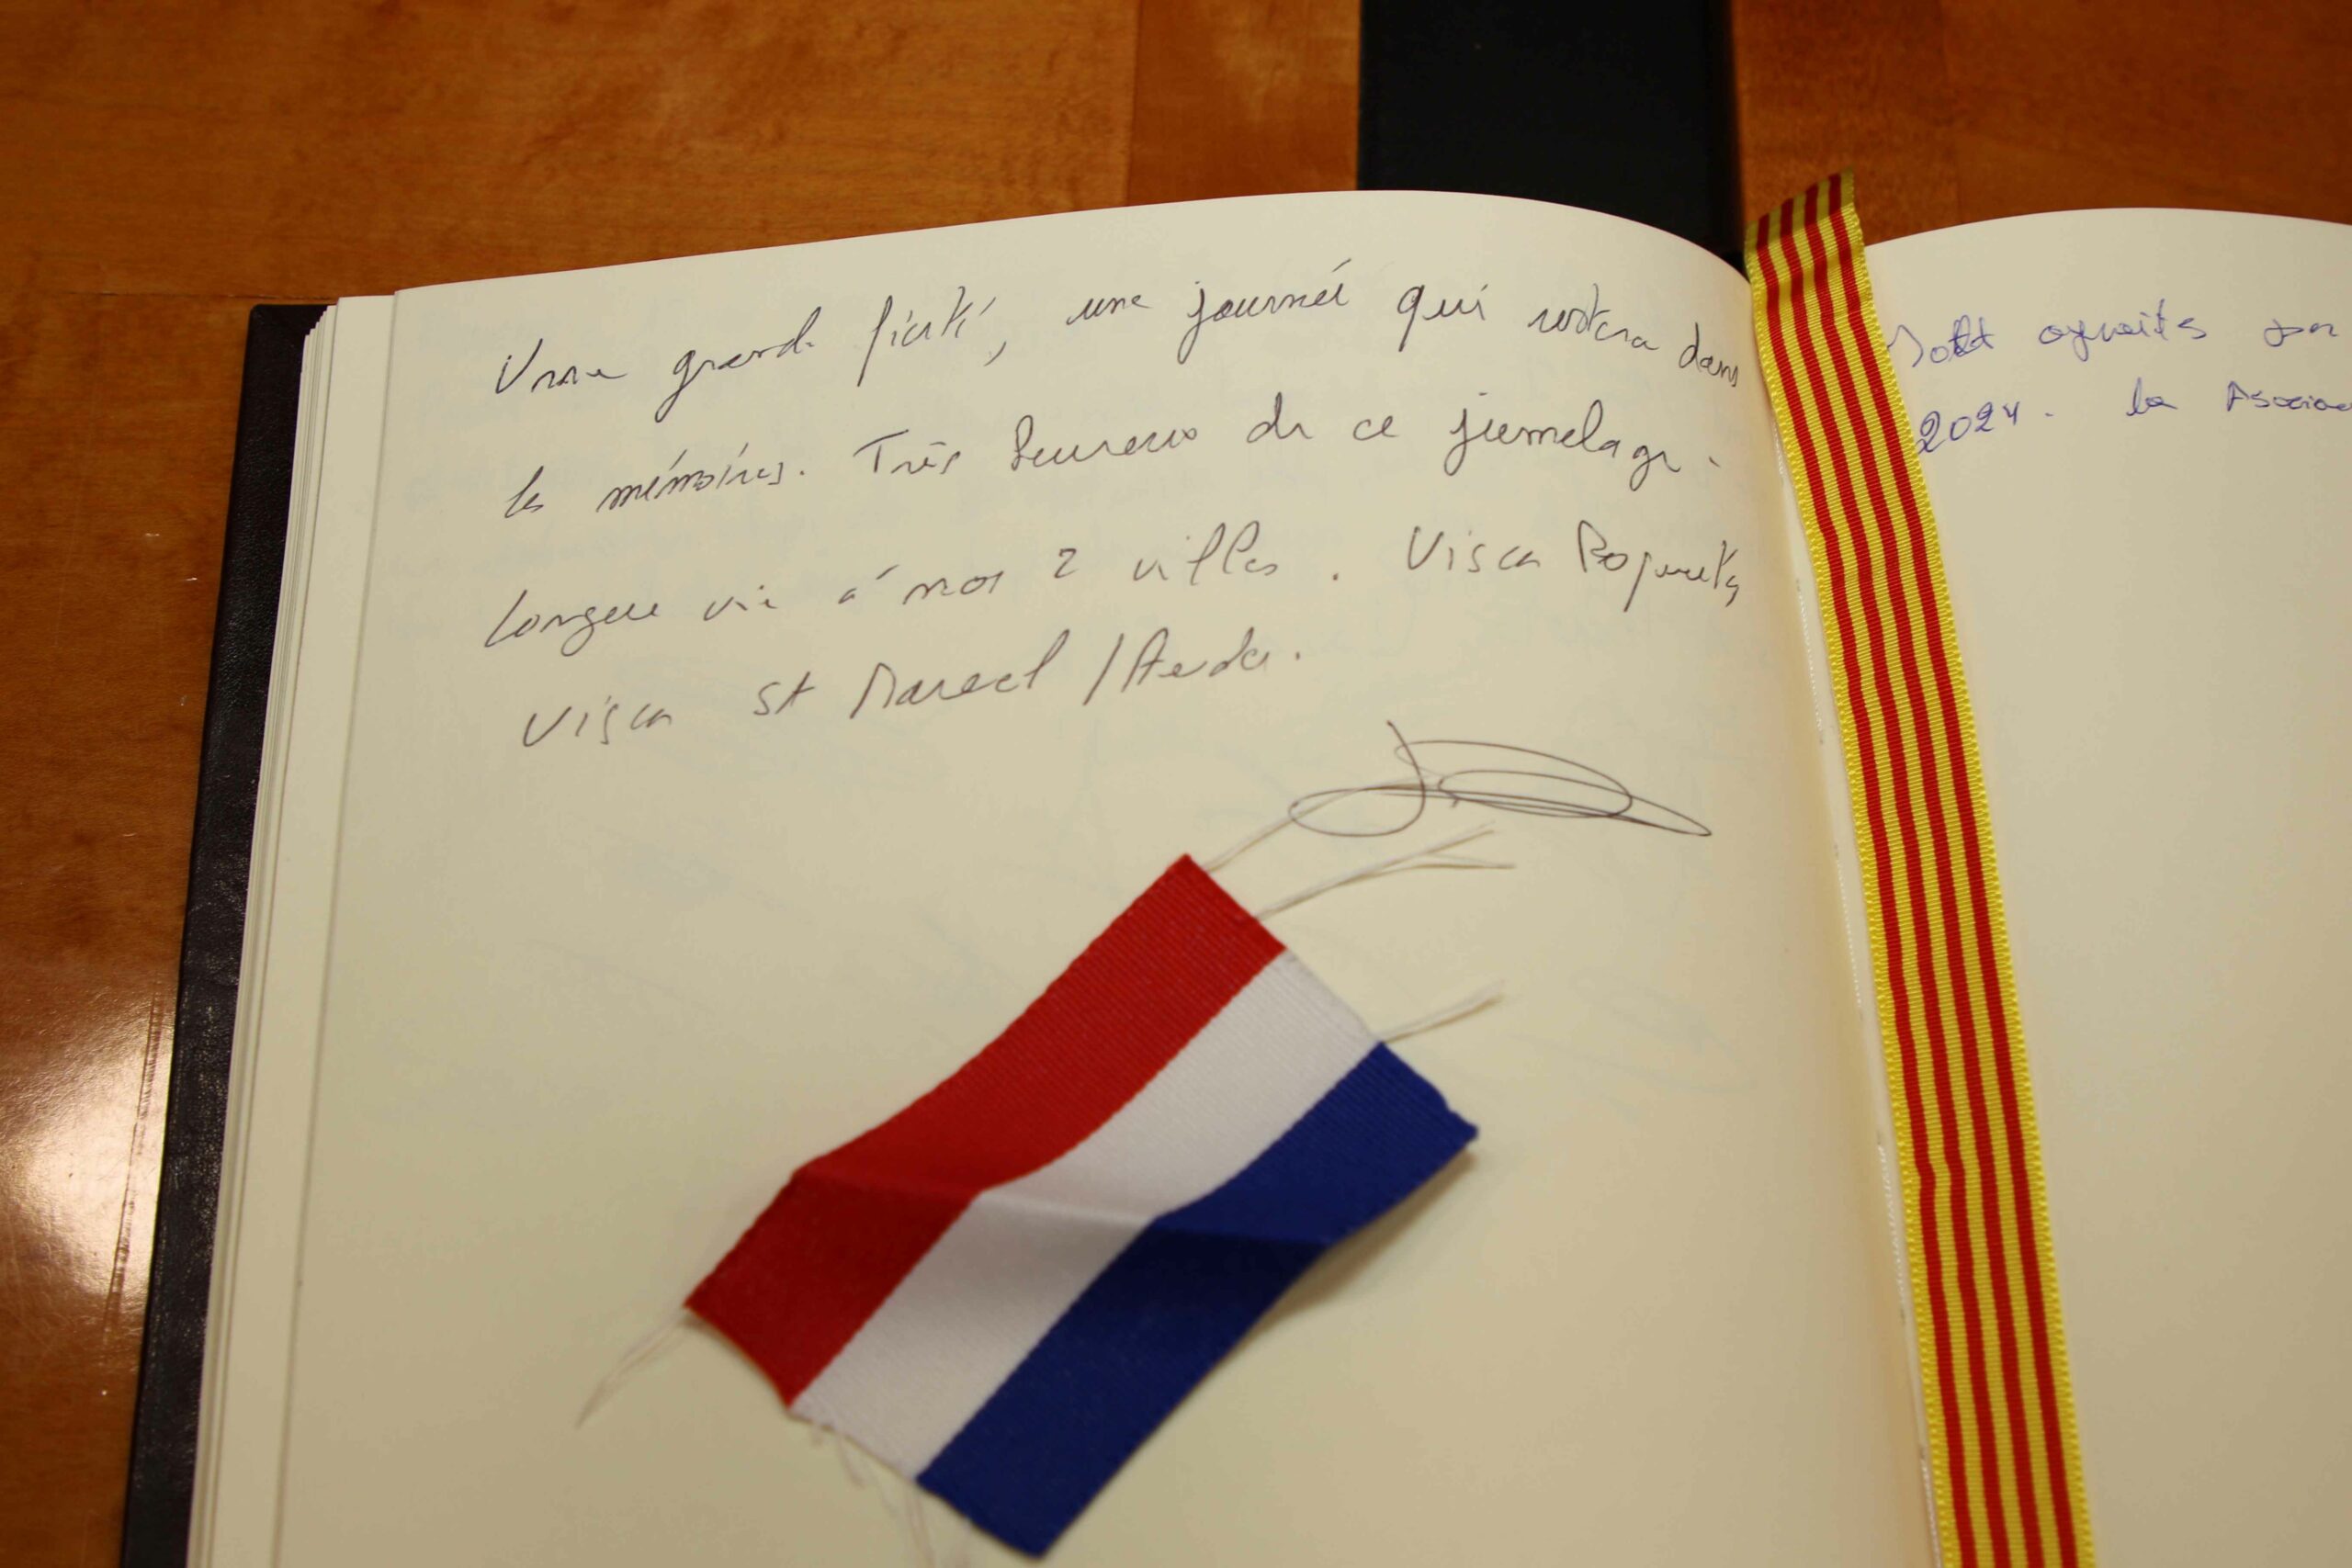 Une grande fierté, une journée qui restera dans
les mémoires. Très heureux de ce jumelage.
Longue vie à nos 2 villes. Visca Roquetes,
Visca St Marcel / Aude.
Molt agraïts per
2024. La Asociac